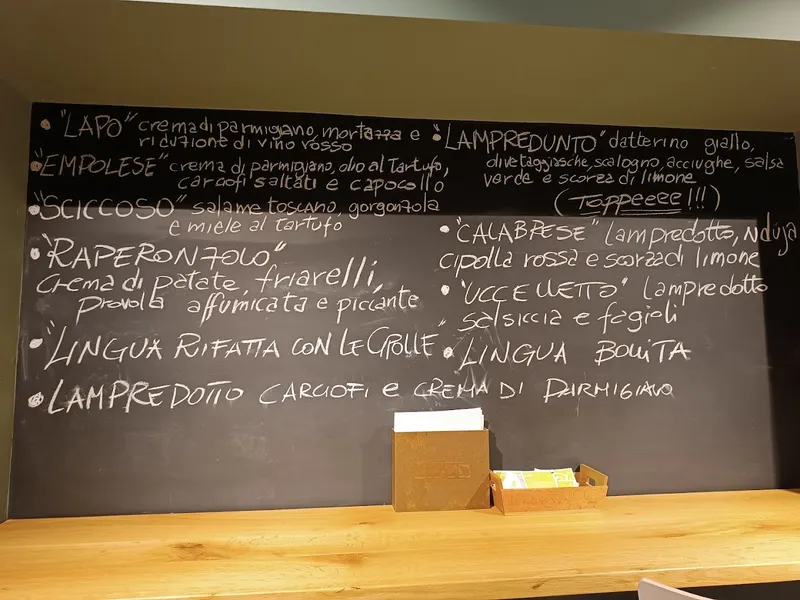 • "LAPO" crema di parmigiano, mortazza e
riduzione di vino rosso
• "EMPOLESE" crema di parmigiano, olio al tartufo,
carciofi saltati e capocollo
• "SCICCOSO" salame toscano, gorgonzola
e miele al tartufo
• "RAPERONZOLO"
crema di patate, friarelli,
provola affumicata e piccante
• "LINGUA RIFATTA CON LE CIPOLLE"
• LAMPREDOTTO CARCIOFI e CREMA DI PARMIGIANO
• "LAMPREDUNTO" datterino giallo,
olive taggiasche, scalogno, acciughe, salsa
verde e scorza di limone
(Tappeeee!!!)
• "CALABRESE" lampredotto, Nduja
cipolla rossa e scorza di limone
• "UCCELLETTO" lampredotto
salsiccia e fagioli
• LINGUA BOLLITA